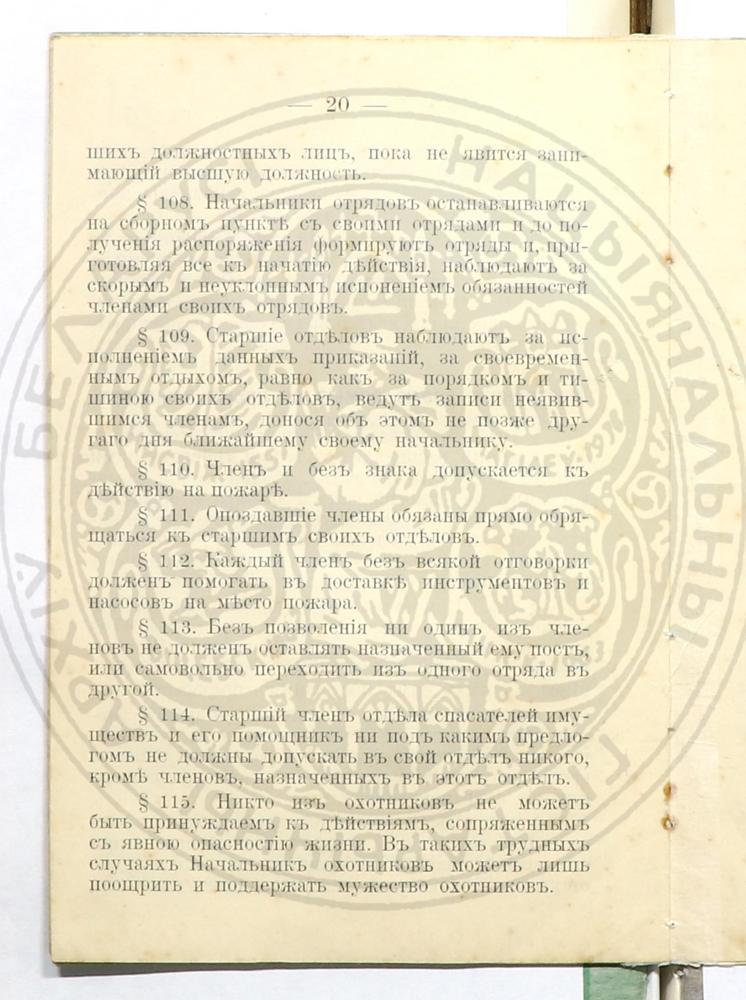 — 20 —
шихъ должностныхъ лицъ, пока не явится зани-
мающій высшую должность.
§ 108. Начальники отрядовъ останавливаются
на сборномъ пунктѣ съ своими отрядами и до по-
лученія распоряженія формируютъ отряды и, при-
готовляя все къ начатію дѣйствія, наблюдаютъ за
скорымъ и неуклоннымъ испоненіемъ обязанностей
членами своихъ отрядовъ.
§ 109. Старшіе отдѣловъ наблюдаютъ за ис-
полненіемъ данныхъ приказаній, за своевремен-
нымъ отдыхомъ, равно какъ за порядкомъ и ти-
шиною своихъ отдѣловъ, ведутъ записи неявив-
шимся членамъ, донося объ этомъ не позже дру-
гаго дня ближайшему своему начальнику.
§ 110. Членъ и безъ знака допускается къ
дѣйствію на пожарѣ.
§ 111. Опоздавшіе члены обязаны прямо обря-
щаться къ старшимъ своихъ отдѣловъ.
§ 112. Каждый членъ безъ всякой отговорки
долженъ помогать въ доставкѣ инструментовъ и
насосовъ на мѣсто пожара.
§ 113. Безъ позволенія ни одинъ изъ чле-
новъ не долженъ оставлять назначенный ему постъ,
или самовольно переходить изъ одного отряда въ
другой.
§ 114. Старшій членъ отдѣла спасателей иму-
ществъ и его помощникъ ни подъ какимъ предло-
гомъ не должны допускать въ свой отдѣлъ никого,
кромѣ членовъ, назначенныхъ въ этотъ отдѣлъ.
§ 115. Никто изъ охотниковъ не можетъ
быть принуждаемъ къ дѣйствіямъ, сопряженнымъ
съ явною опасностію жизни. Въ такихъ трудныхъ
случаяхъ Начальникъ охотниковъ можетъ лишь
поощрить и поддержать мужество охотниковъ.
НАЦЫЯНАЛЬНЫ
БЕЛАРУСІ